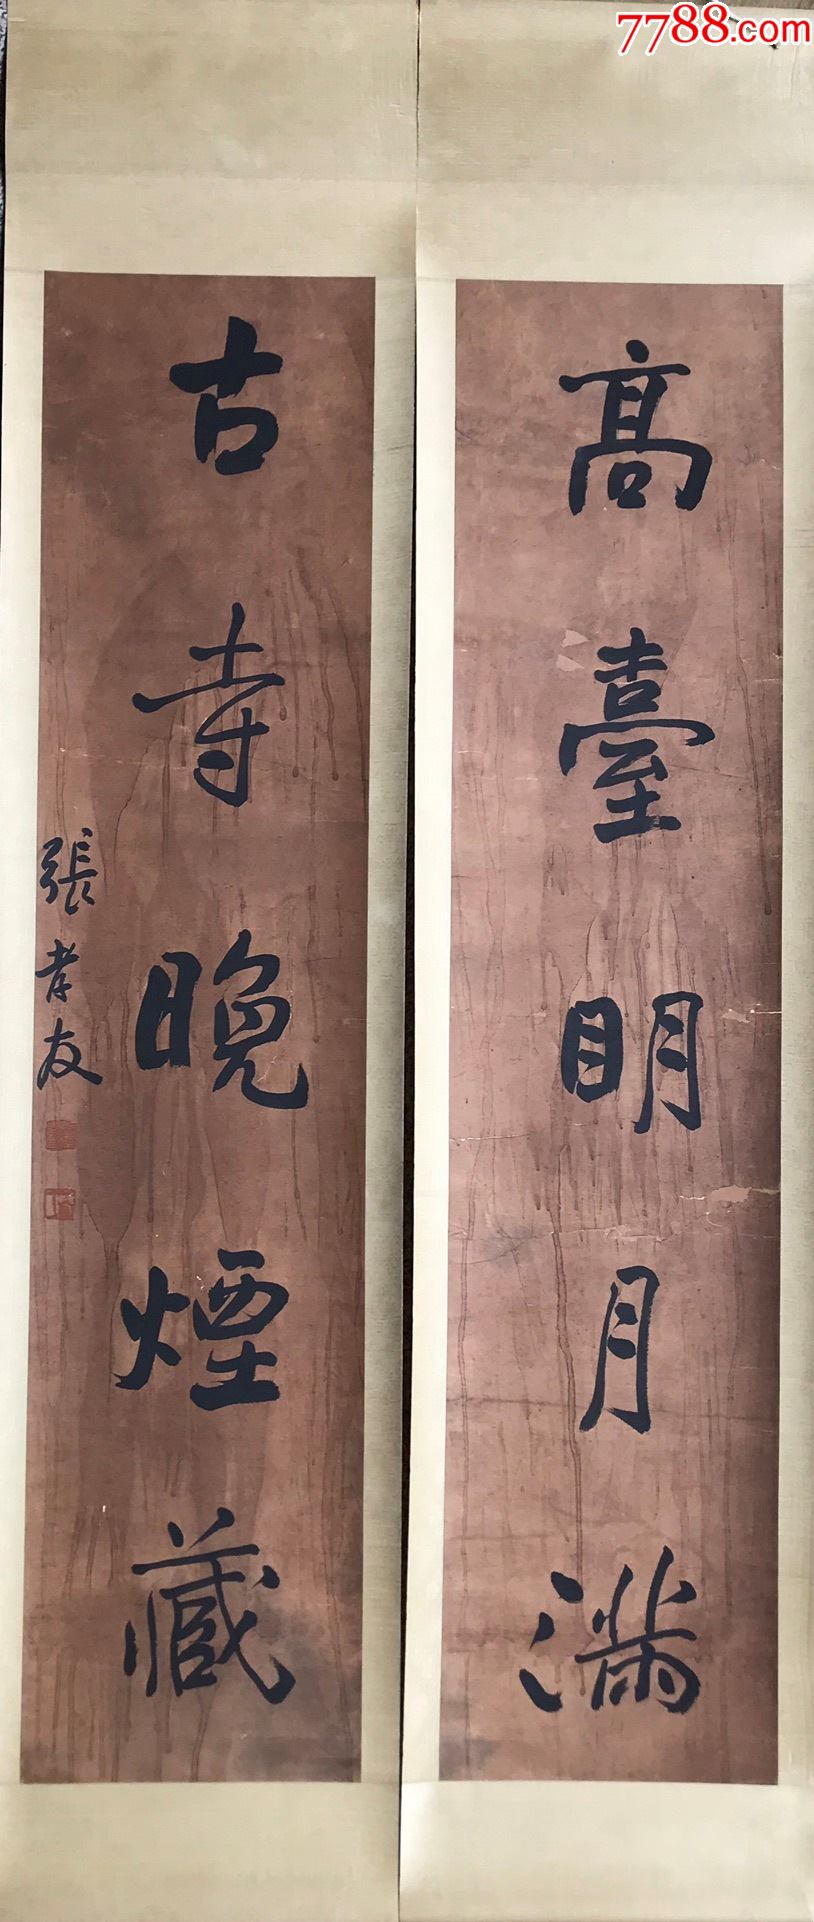 7788.com
高臺明月滿
古寺晚煙藏
張孝友